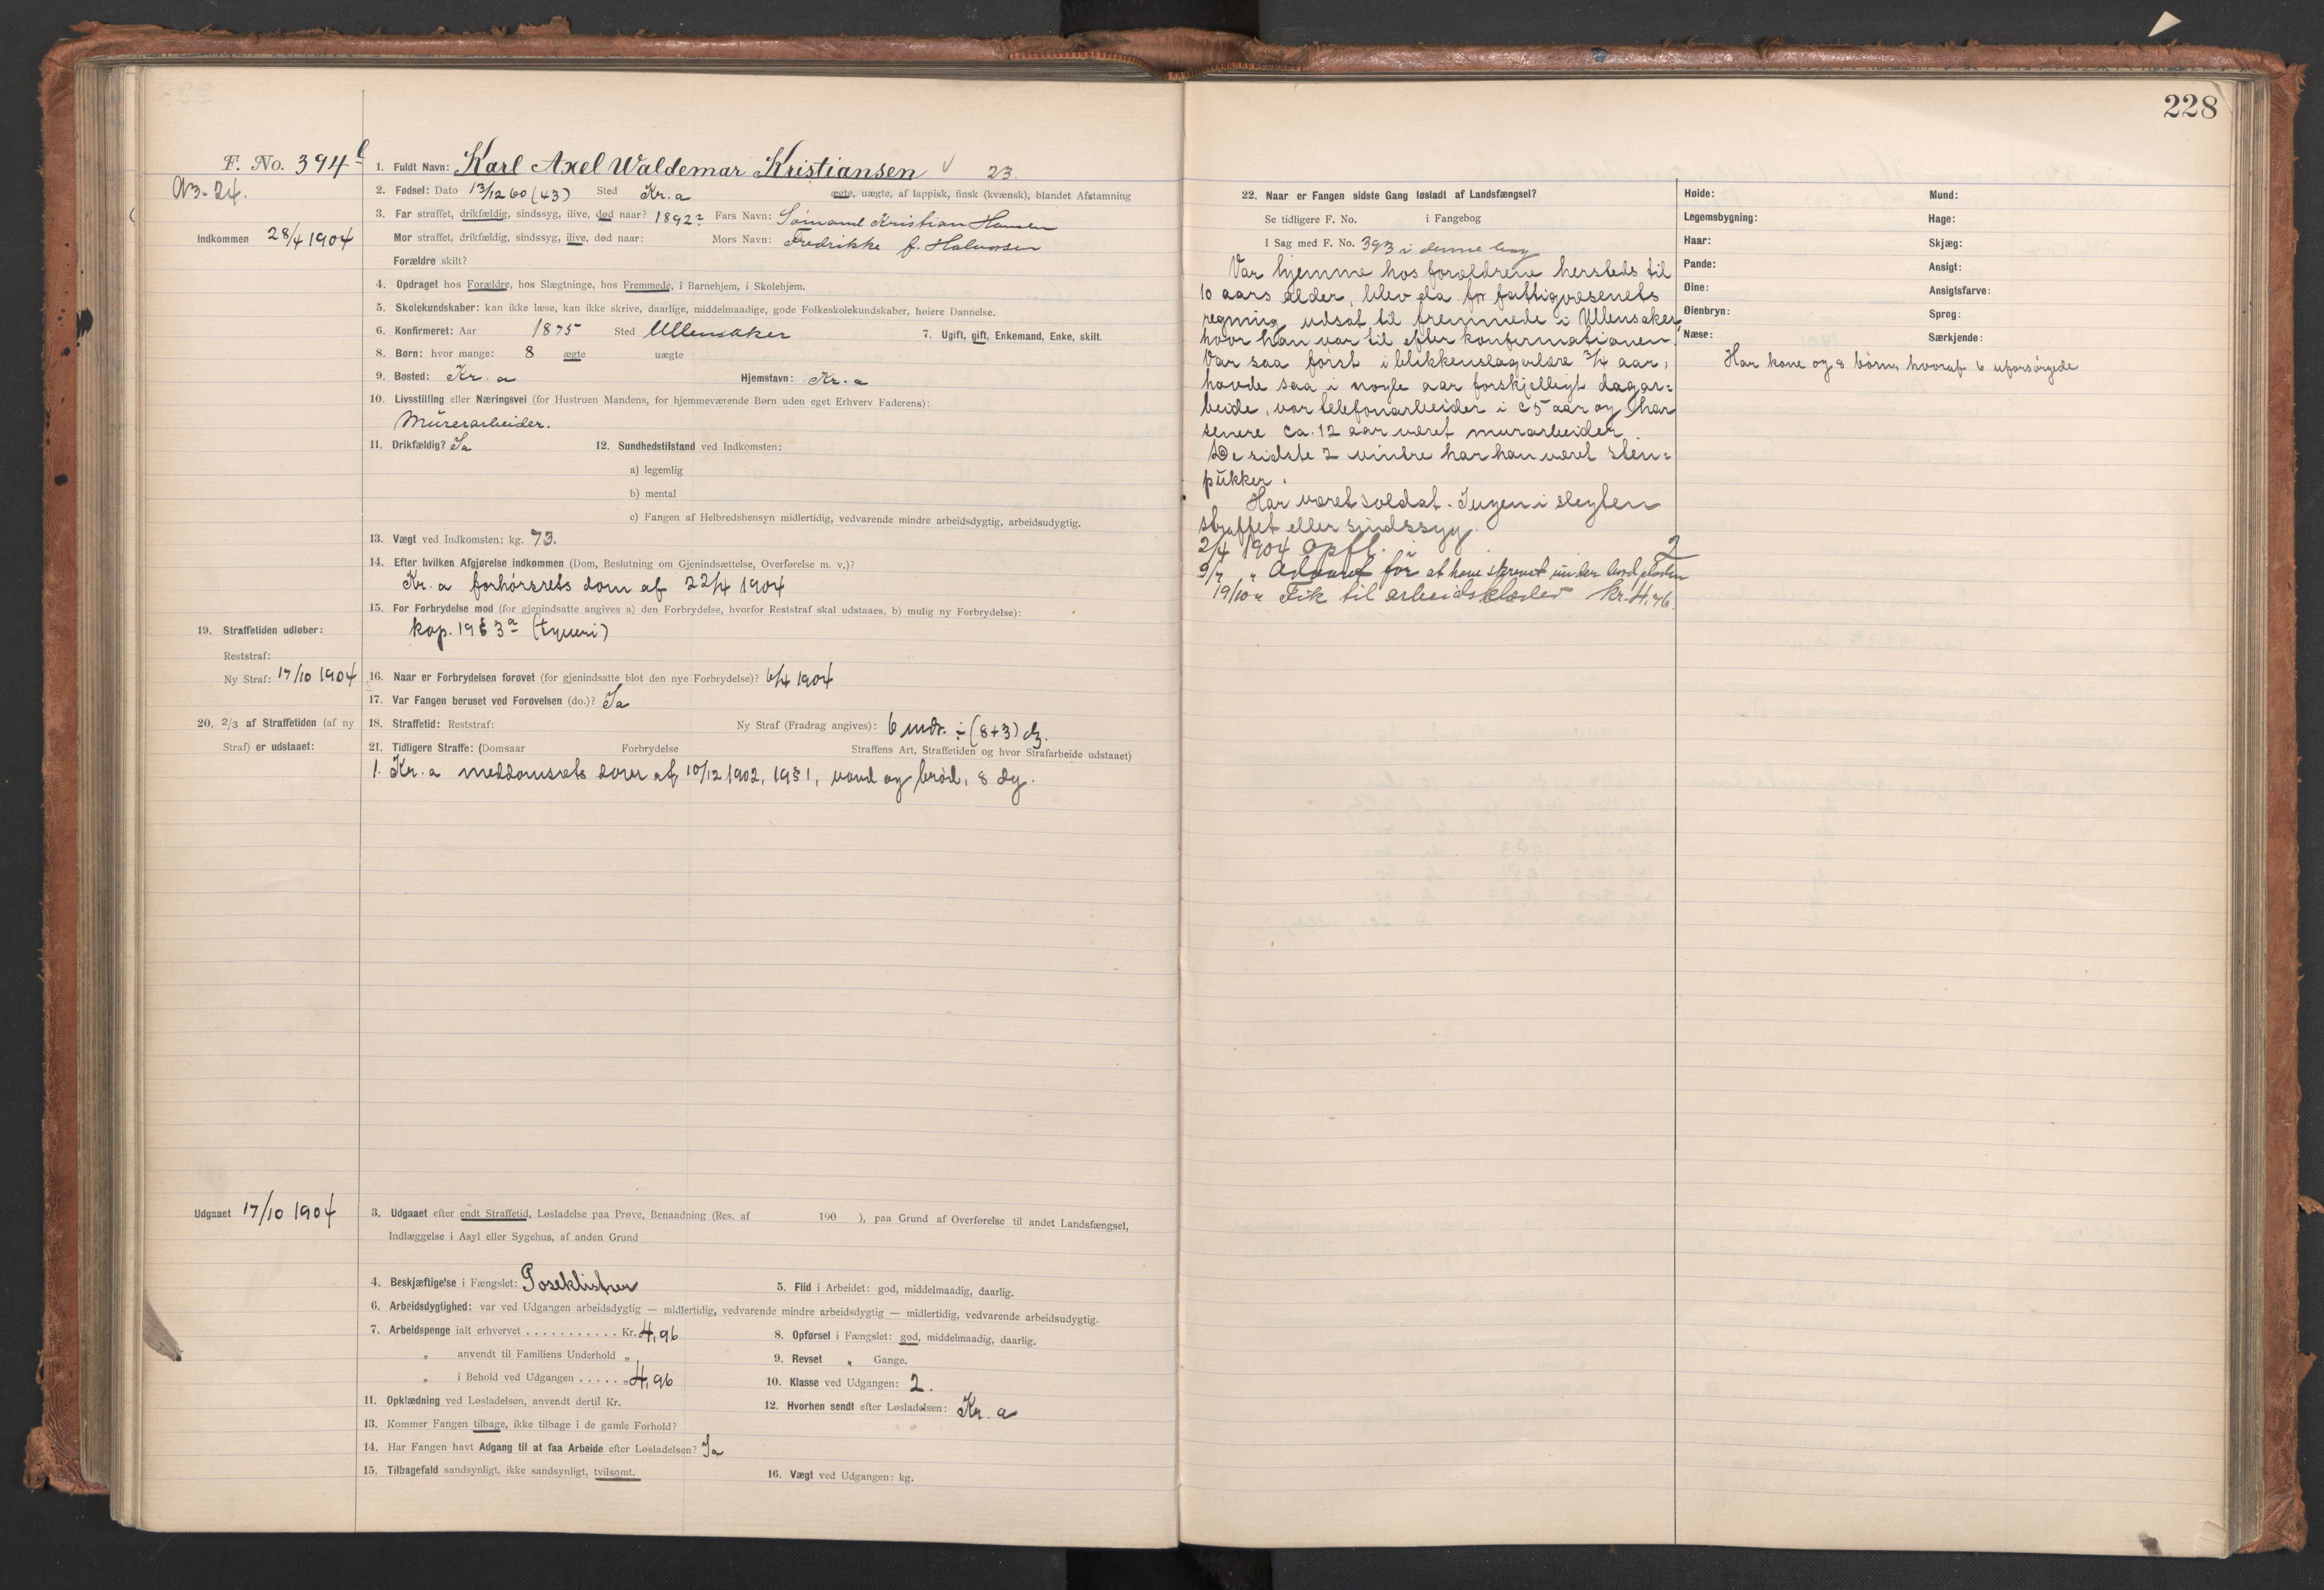 228
F. No. 394
1. Fuldt Navn: Karl Axel Waldemar Kristiansen 23.
N3-24.
2. Fødsel: Dato 13/12 60 (43) Sted Kr.a ægte, uægte, af lappisk, finsk (kvænsk), blandet Afstamning
3. Far straffet, drikfældig, sindssyg, ilive, død naar? 1892? Fars Navn: Sømand Kristian Hansen
Indkommen 28/4 1904
Mor straffet, drikfældig, sindssyg, ilive, død naar: Mors Navn: Fredrikke f. Halvorsen
Forældre skilt?
4. Opdraget hos Forældre, hos Slægtninge, hos Fremmede, i Barnehjem, i Skolehjem.
5. Skolekundskaber: kan ikke læse, kan ikke skrive, daarlige, middelmaadige, gode Folkeskolekundskaber, høiere Dannelse.
6. Konfirmeret: Aar 1875 Sted Ullensaker 7. Ugift, gift, Enkemand, Enke, skilt.
8. Børn: hvor mange: 8 ægte uægte
9. Bosted: Kr.a Hjemstavn: Kr.a
10. Livsstilling eller Næringsvei (for Hustruen Mandens, for hjemmeværende Børn uden eget Erhverv Faderens):
Murerarbeider.
11. Drikfældig? Ja 12. Sundhedstilstand ved Indkomsten:
a) legemlig
b) mental
c) Fangen af Helbredshensyn midlertidig, vedvarende mindre arbeidsdygtig, arbeidsudygtig.
13. Vægt ved Indkomsten: kg. 73.
14. Efter hvilken Afgjørelse indkommen (Dom, Beslutning om Gjenindsættelse, Overførelse m. v.)?
Kr.a forhørsrets dom af 22/4 1904
15. For Forbrydelse mod (for gjenindsatte angives a) den Forbrydelse, hvorfor Reststraf skal udstaaes, b) mulig ny Forbrydelse):
kap. 19 § 3 a (tyveri)
19. Straffetiden udløber:
Reststraf:
Ny Straf: 17/10 1904
16. Naar er Forbrydelsen forøvet (for gjenindsatte blot den nye Forbrydelse)? 6/4 1904
17. Var Fangen beruset ved Forøvelsen (do.)? Ja
20. 2/3 af Straffetiden (af ny
Straf) er udstaaet:
18. Straffetid: Reststraf: Ny Straf (Fradrag angives): 6 mdr. ÷ (8+3) dg.
21. Tidligere Straffe: (Domsaar Forbrydelse Straffens Art, Straffetiden og hvor Strafarbeide udstaaet)
1. Kr.a meddomsrets dom af 10/12 1902, 19 § 1, vand og brød, 8 dg.
Udgaaet 17/10 1904
3. Udgaaet efter endt Straffetid, Løsladelse paa Prøve, Benaadning (Res. af 190 ), paa Grund af Overførelse til andet Landsfængsel,
Indlæggelse i Asyl eller Sygehus, af anden Grund
4. Beskjæftigelse i Fængslet: Poseklistrer 5. Flid i Arbeidet: god, middelmaadig, daarlig.
6. Arbeidsdygtighed: var ved Udgangen arbeidsdygtig — midlertidig, vedvarende mindre arbeidsdygtig — midlertidig, vedvarende arbeidsudygtig.
7. Arbeidspenge ialt erhvervet ........... Kr. 4,96 8. Opførsel i Fængslet: god, middelmaadig, daarlig.
„ anvendt til Familiens Underhold „ 9. Revset „ Gange.
„ i Behold ved Udgangen ..... „ 4,96 10. Klasse ved Udgangen: 2.
11. Opklædning ved Løsladelsen, anvendt dertil Kr. 12. Hvorhen sendt efter Løsladelsen: Kr.a
13. Kommer Fangen tilbage, ikke tilbage i de gamle Forhold?
14. Har Fangen havt Adgang til at faa Arbeide efter Løsladelsen? Ja
15. Tilbagefald sandsynligt, ikke sandsynligt, tvilsomt. 16. Vægt ved Udgangen: kg.
22. Naar er Fangen sidste Gang løsladt af Landsfængsel?
Se tidligere F. No. i Fangebog
I Sag med F. No. 393 i denne bog
Var hjemme hos forældrene hersteds til
10 aars alder, blev da for fattigvæsenets
regning udsat til fremmede i Ullensaker,
hvor han var til efter konfirmationen.
Var saa først i blikkenslagerlære 3/4 aar,
havde saa i nogle aar forskjelligt dagar=
beide, var telefonarbeider i c 5 aar og har
senere ca. 12 aar været murarbeider.
De sidste 2 vintre har han været sten=
pukker.
Har været soldat. Ingen i slegten
straffet eller sindssyg.
2/7 1904 Opfl. i 2
9/7 „ Advaret for at have skrevet under bordpladen
19/10 „ Fik til arbeidsklæder kr. 4,96.
Høide: Mund:
Legemsbygning: Hage:
Haar: Skjæg:
Pande: Ansigt:
Øine: Ansigtsfarve:
Øienbryn: Sprog:
Næse: Særkjende:
Har kone og 8 børn, hvoraf 6 uforsørgede